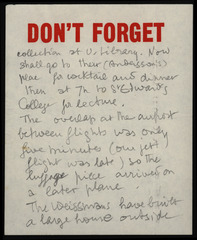 DON'T FORGET
collection at U. Library. Now
shall go to their (Ambassan's)
place for cocktail and dinner
then at 7h to St Edwards
College for lecture.
The overlap at the airport
between flights was only
five minutes (one jet
flight was late) so the
luggage piece arrived on
a later plane.
The Weissmans have built
a large house outside